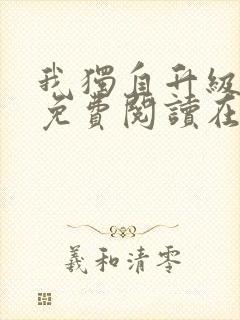 我獨自升級
免費閱讀在
羲和清零